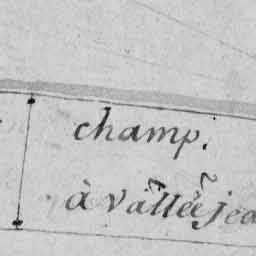 champ.
à vallée jea